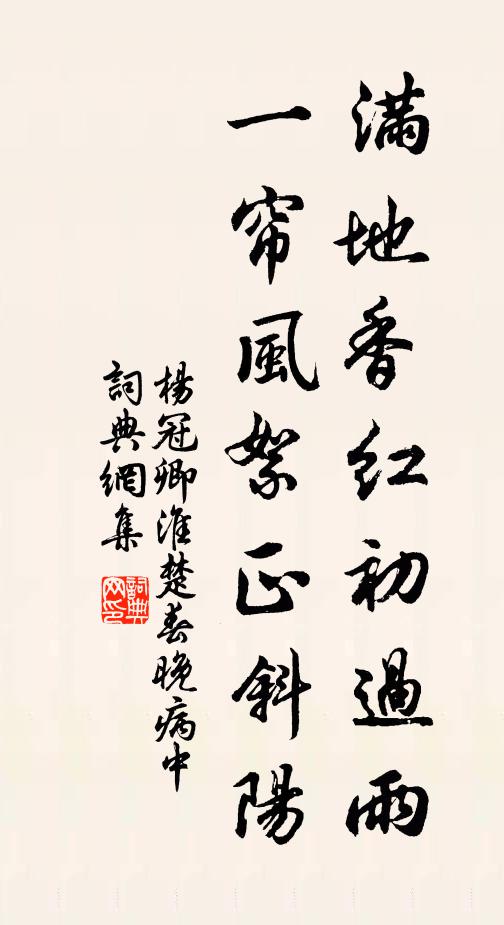 滿地香紅初過雨
一帘風絮正斜陽
楊冠卿淮楚春晚病中
詞典網集
詞典網印